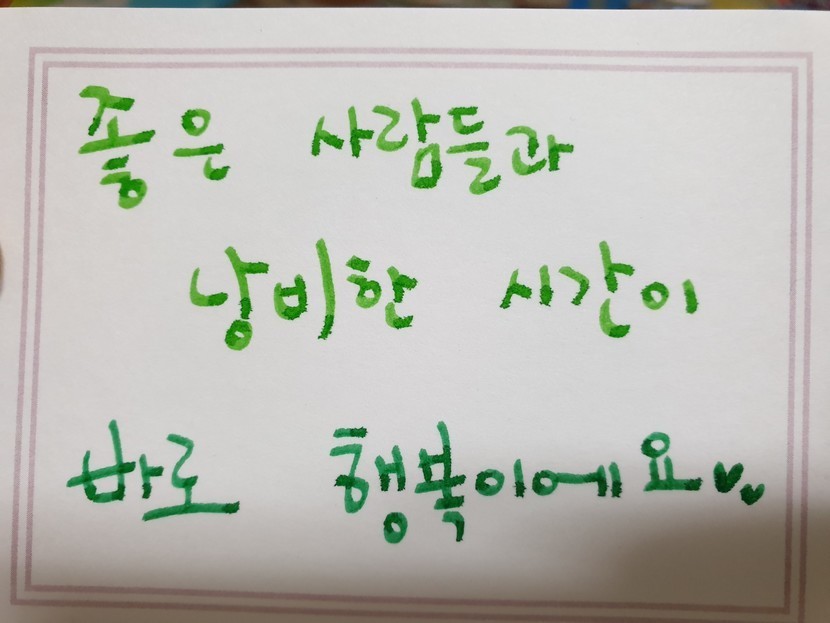 좋은 사람들과
낭비한 시간이
바로 행복이에요♥♥